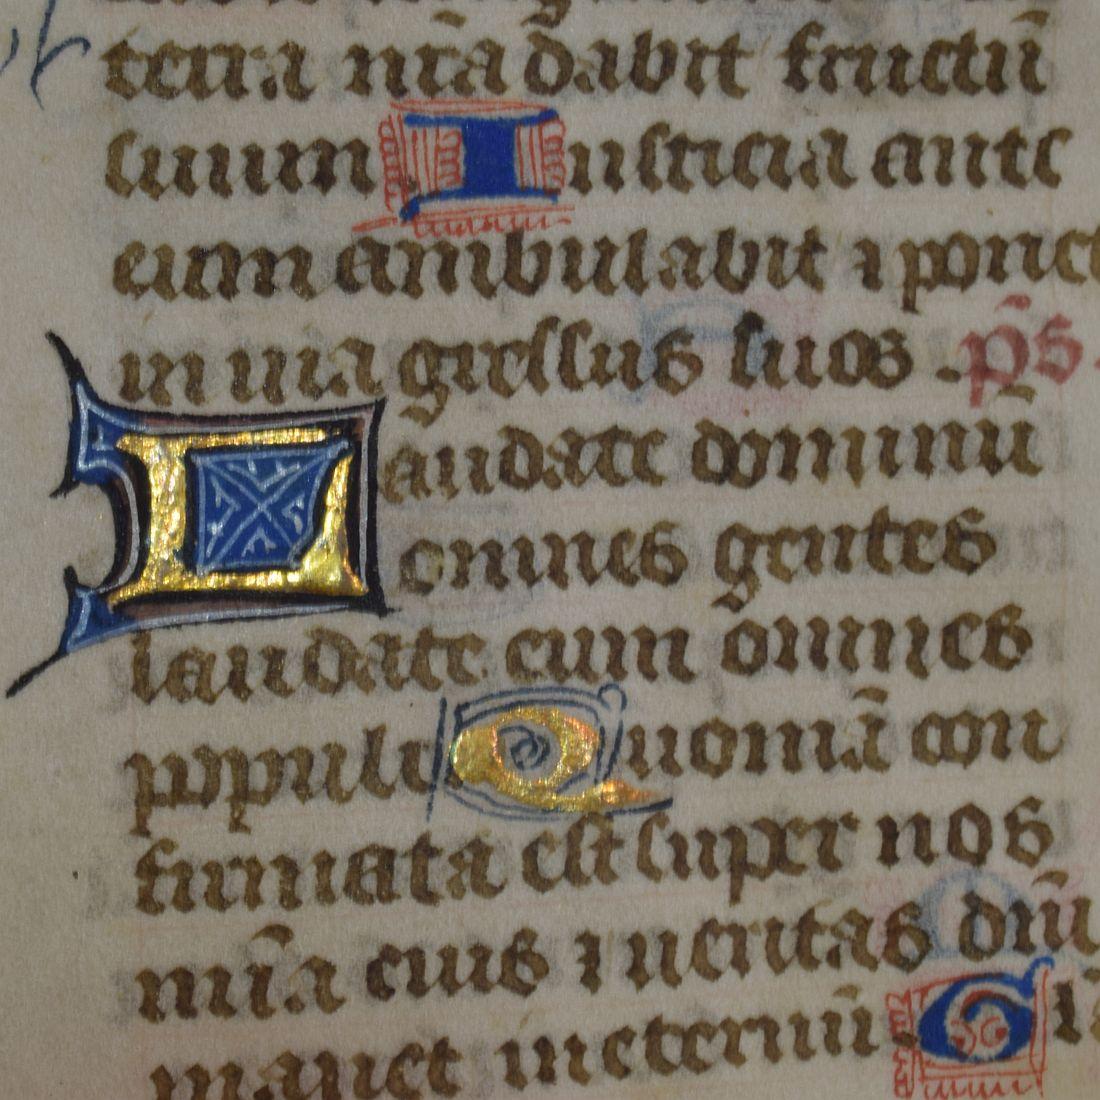 terra nr̄a dabit fructū
suum Iusticia ante
eum ambulabit ⁊ ponet
in uia gressus suos . p̄s.
Laudate dominū
omnes gentes
laudate eum omnes
populi Quoniā con
firmata est super nos
mīa eius ⁊ ueritas dn̄i
manet ineternū. Gl̄a